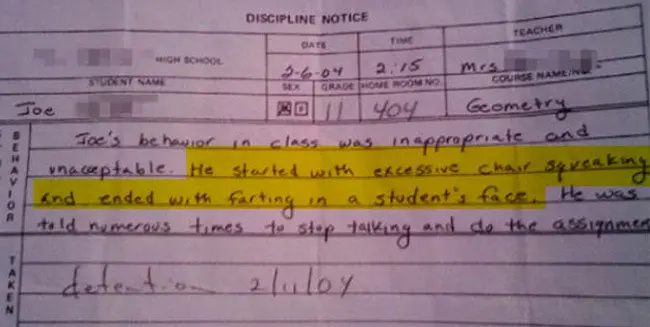 DISCIPLINE NOTICE
DATE TIME TEACHER
HIGH SCHOOL 2-6-04 2:15 Mrs
STUDENT NAME SEX GRADE HOME ROOM NO. COURSE NAME/NO.
Joe M F 11 404 Geometry
BEHAVIOR
Joe's behavior in class was inappropriate and
unacceptable. He started with excessive chair squeaking
and ended with farting in a student's face. He was
told numerous times to stop talking and do the
TAKEN
detention 2/11/04